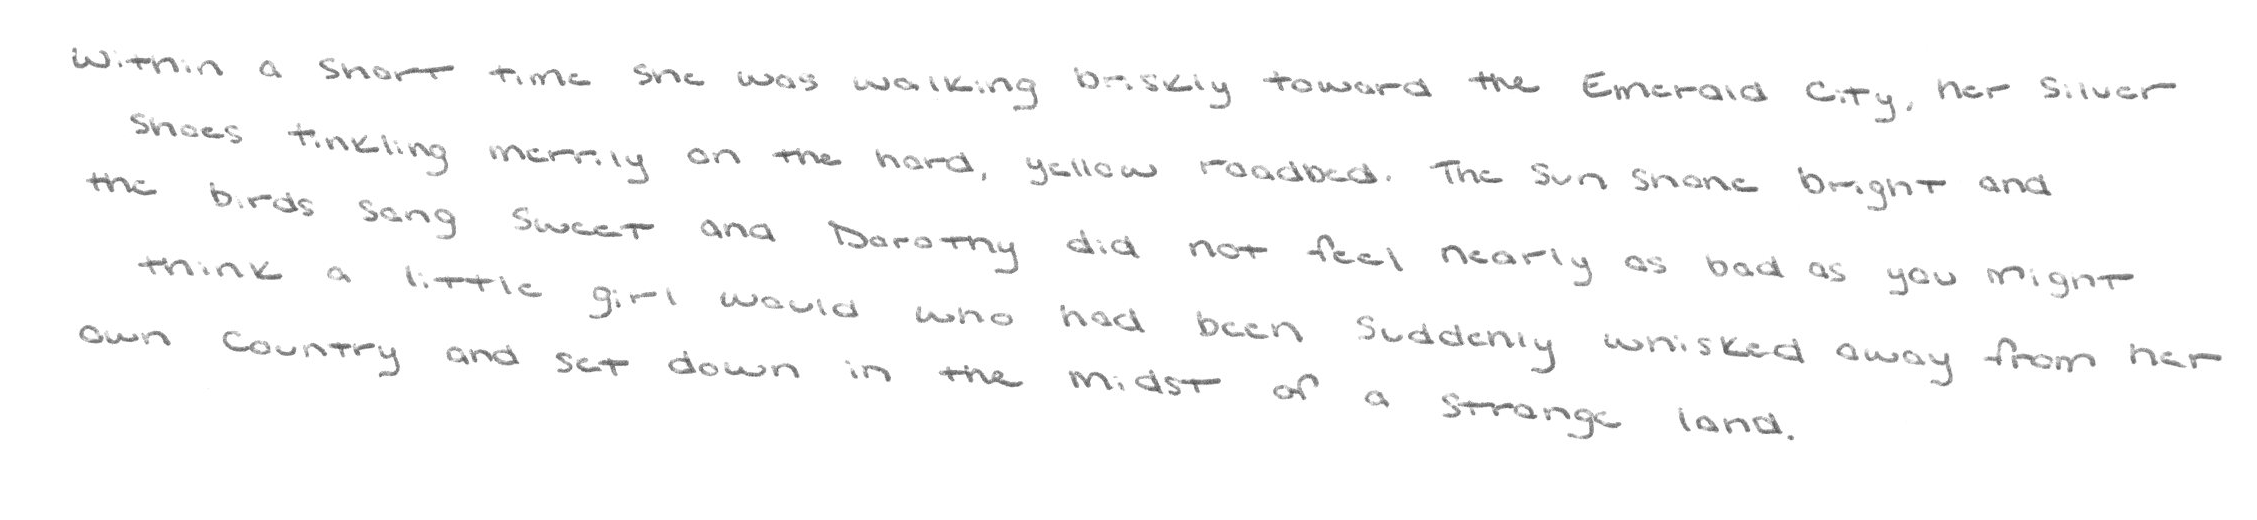 Within a short time she was walking briskly toward the Emerald City, her Silver
Shoes tinkling merrily on the hard, yellow roadbed. The sun shone bright and
the birds sang sweet and Dorothy did not feel nearly as bad as you might
think a little girl would who had been suddenly whisked away from her
own country and set down in the midst of a strange land.